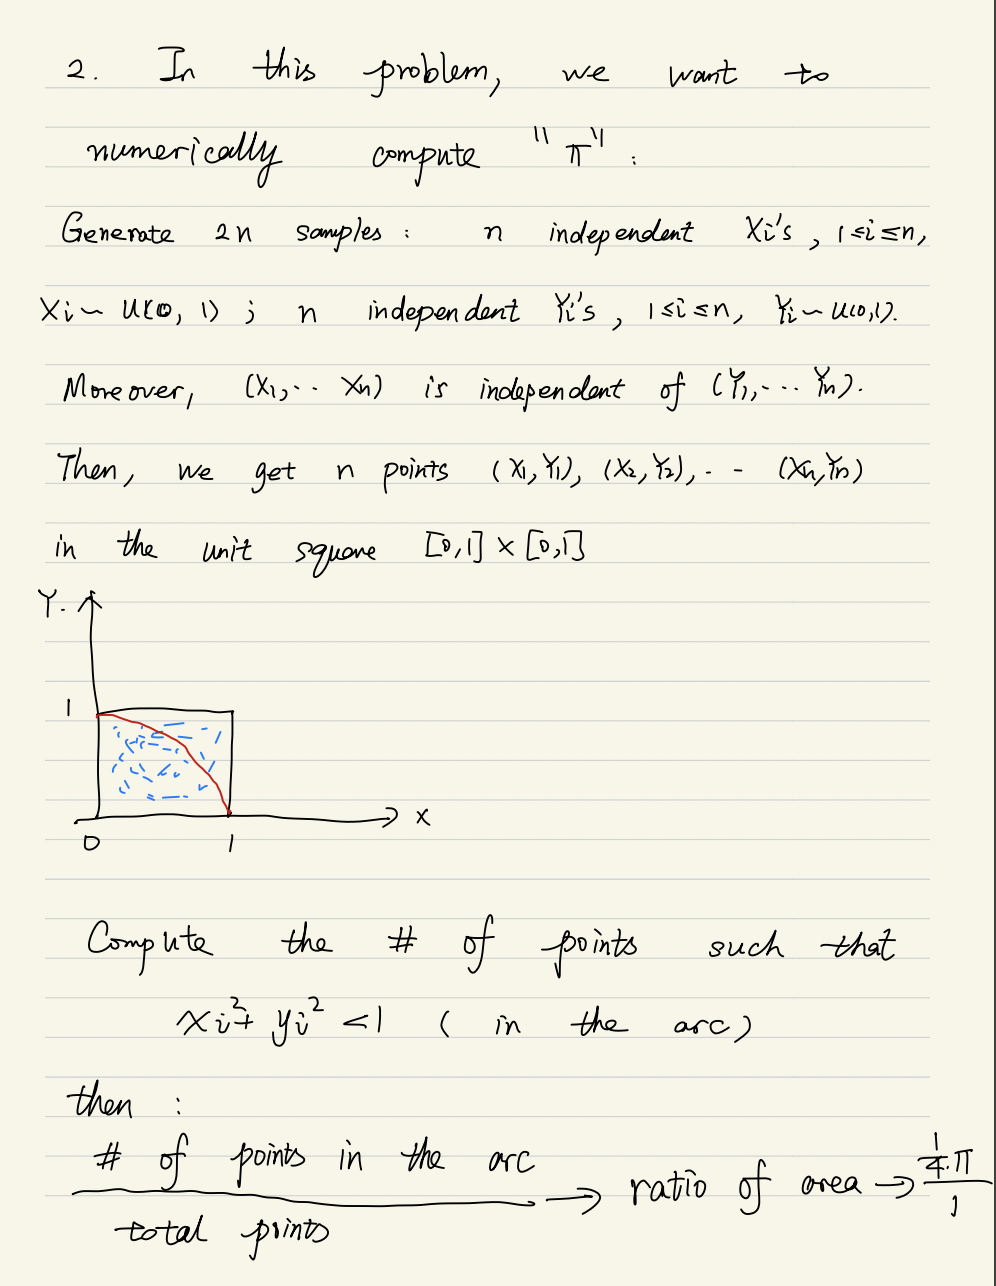 2. In this problem, we want to
numerically compute "π":
Generate 2n samples: n independent Xi's, 1≤i≤n,
Xi~U(0,1); n independent Yi's, 1≤i≤n, Yi~U(0,1).
Moreover, (X1,.. Xn) is independent of (Y1,... Yn).
Then, we get n points (X1,Y1), (X2,Y2),.. (Xn,Yn)
in the unit square [0,1]×[0,1]
Y.
1
X
0 1
Compute the # of points such that
xi²+yi²<1 (in the arc)
then:
# of points in the arc / total points → ratio of area → 1/4·π / 1